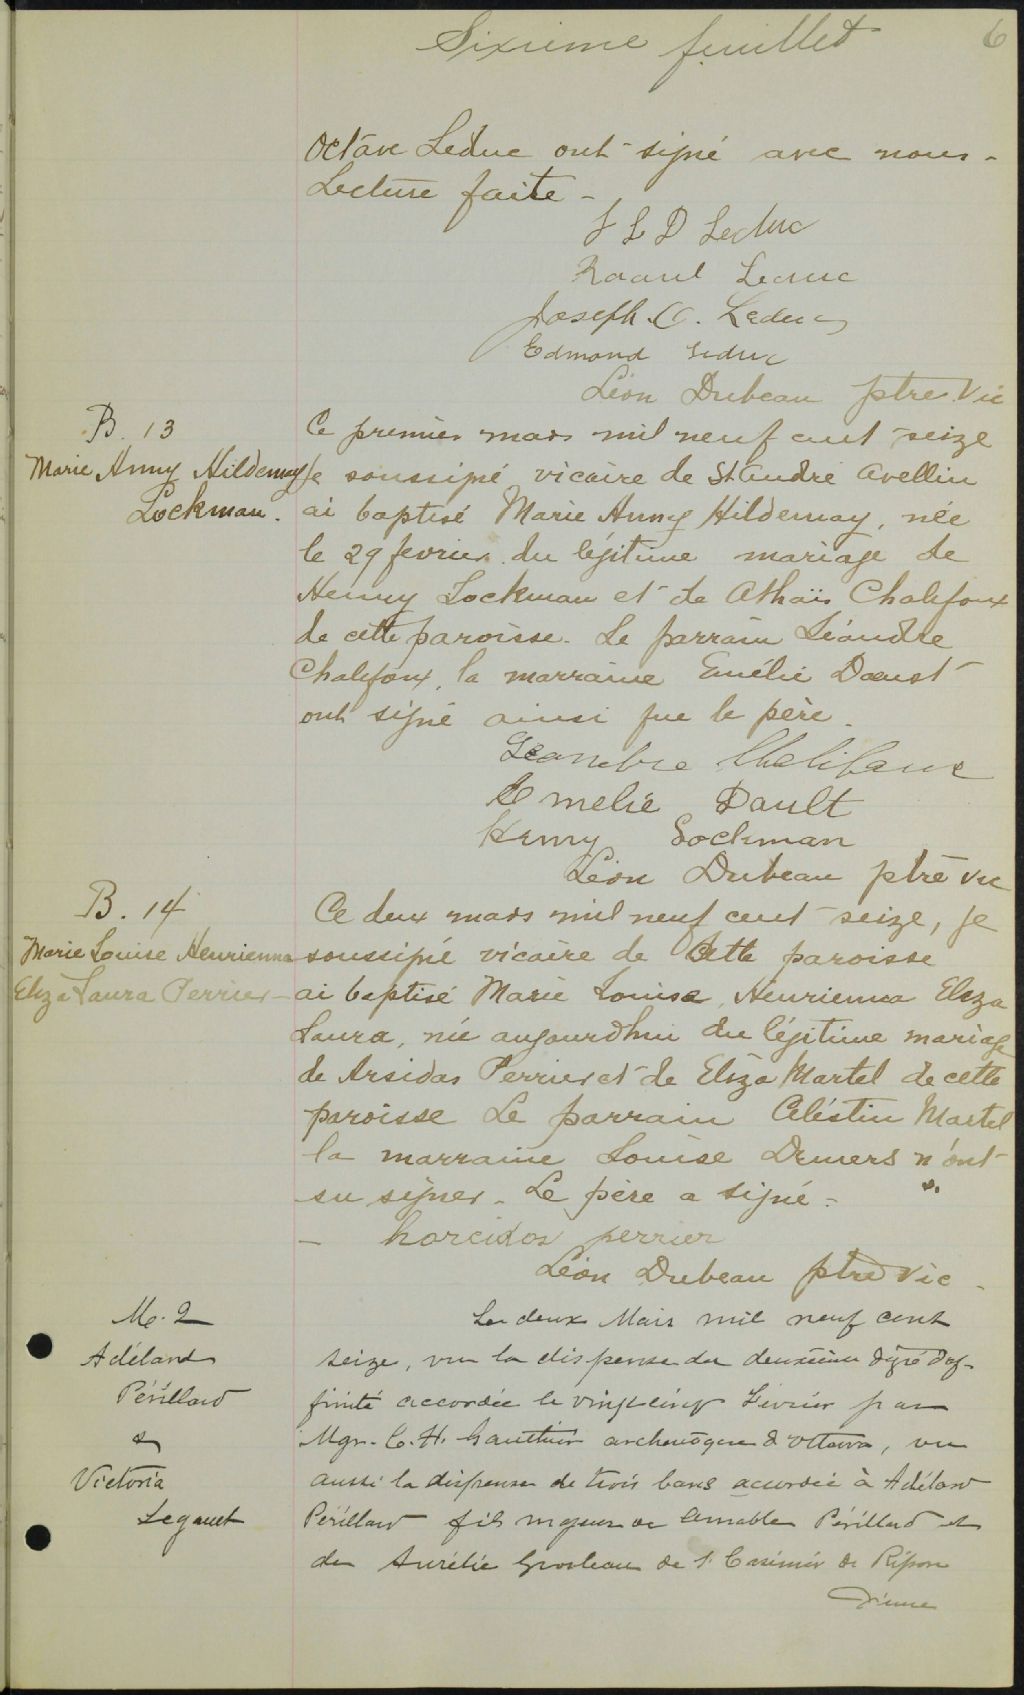 Sixieme feuillet 6
Octave Leduc ont signé avec nous -
Lecture faite -
J L D Leduc
Raoul Leduc
Joseph. O. Leduc
Edmond Leduc
Léon Dubeau ptre Vic
B. 13
Marie Anny Hildemay
Lockman.
Ce premier mars mil neuf cent seize
Je soussigné vicaire de St André Avellin
ai baptisé Marie Anny Hildemay, née
le 29 fevrier du légitime mariage de
Henny Lockman et de Athaïs Chalifoux
de cette paroisse. Le parrain Léandre
Chalifoux, la marraine Emélie Daoust
ont signé ainsi que le père.
Leandre Chalifoux
Emelie Dault
Henry Lockman
Léon Dubeau ptre vic
B. 14
Marie Louise Henrienna
Eliza Laura Perrier -
Ce deux mars mil neuf cent seize, je
soussigné vicaire de cette paroisse
ai baptisé Marie Louise, Henrienna Eliza
Laura, née aujourdhui du légitime mariage
de Arsidas Perrier et de Eliza Martel de cette
paroisse Le parrain Célestin Martel
la marraine Louise Demers n'ont
su signer. Le père a signé -
- harcidos perrier
Léon Dubeau ptre Vic -
M. 2
Adélard
Périllard
&
Victoria
Legault
Le deux Mars mil neuf cent
seize, vu la dispense du deuxième dégré d'af-
finité accordée le vingt cinq Février par
Mgr. C. H. Gauthier archevêque d'Ottawa, vu
aussi la dispense de trois bans accordée à Adélard
Périllard fils mineur de Aimable Périllard et
de Aurélie Groleau de St Casimir de Ripon
d'une